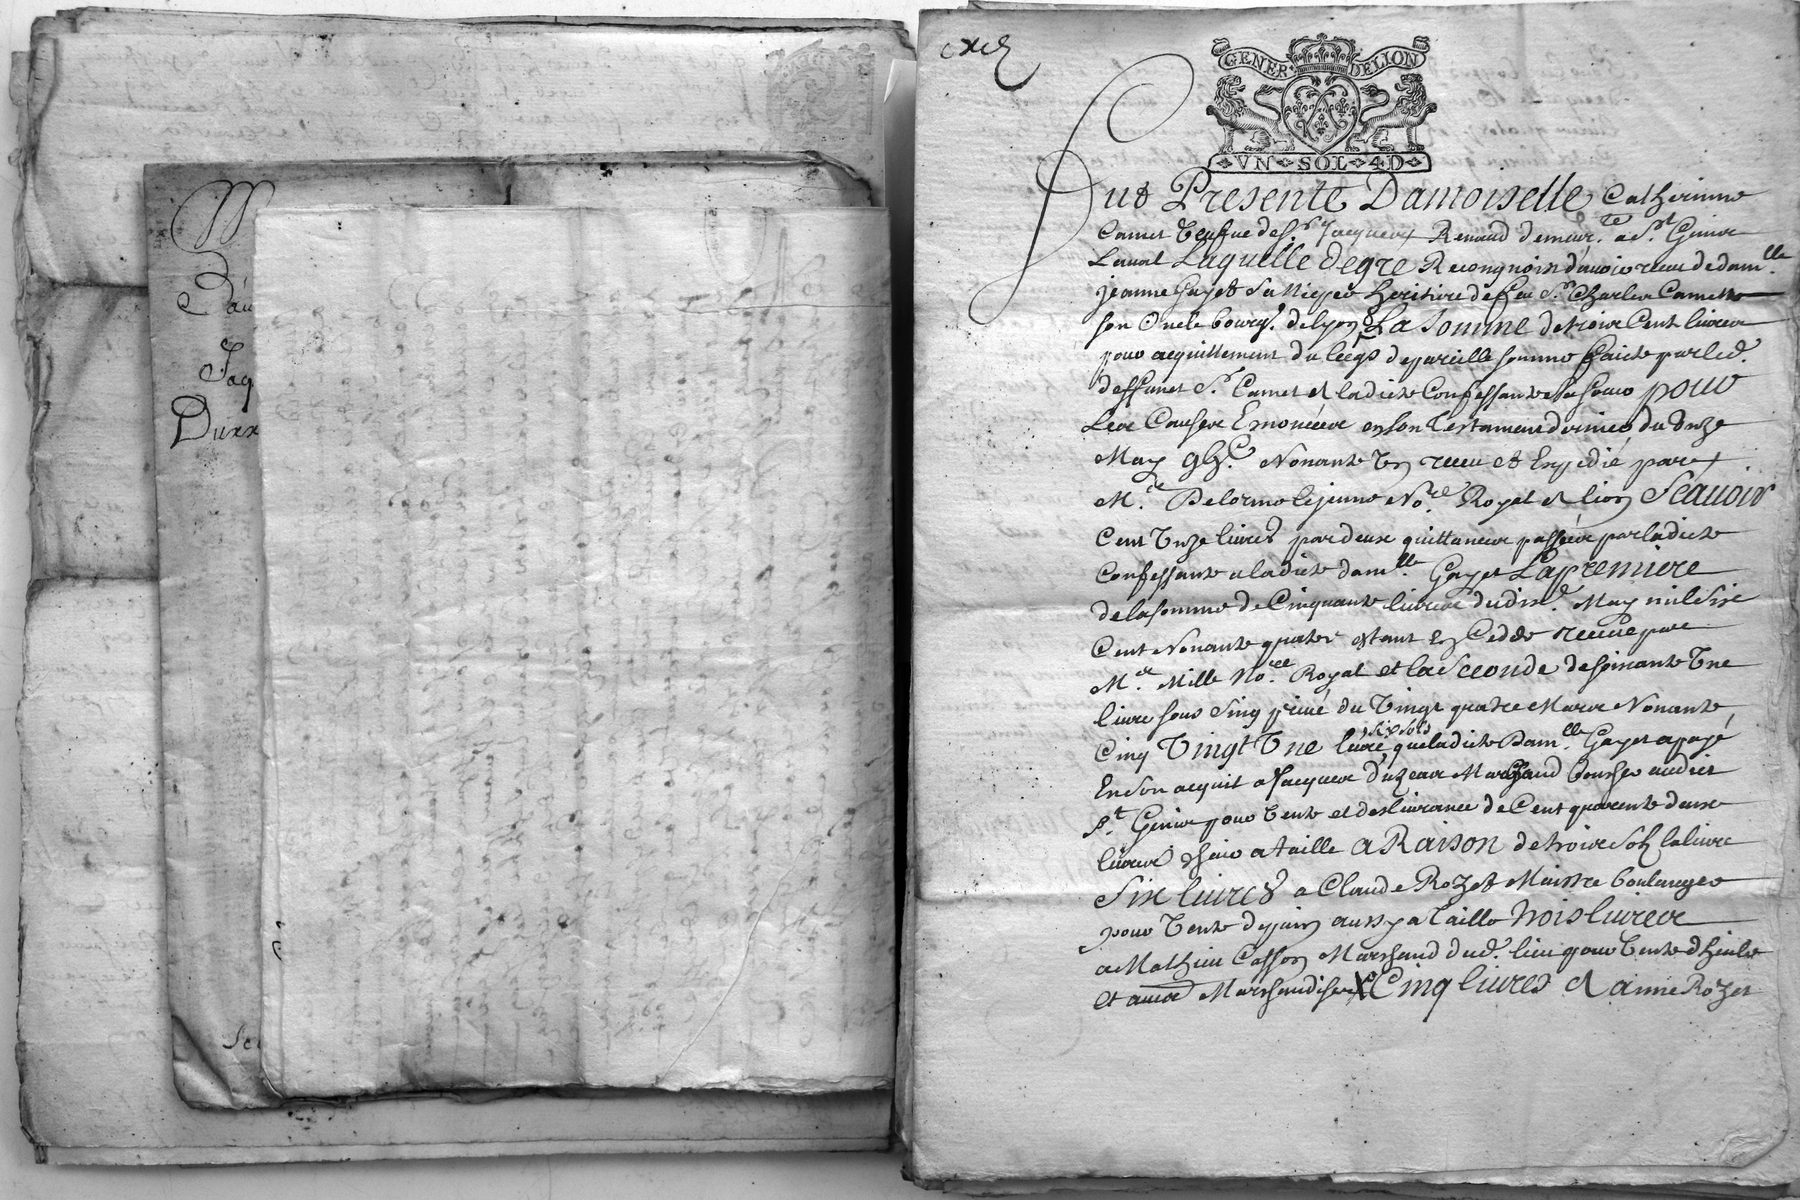 Dur
Jaq
Durx
GENER. DELION
VN SOL 4D
Fut Presente Damoiselle Catherinne
Camet Veufue de Sr. Jacques Renaud demeur.te a St. Genis
Laual Laquelle de gre Recongnoist d'auoir receu de dam.lle
jeanne Gayet sa Niepce heritiere de feu Sr. Charles Camet
son Oncle bourg.s de lyon La Somme de trois Cent liures
pour acquittement du legs de pareille somme faicte par led.
deffunct Sr. Camet a ladicte Confessante sa soeur pour
Les Causes Enoncées en son Testament dernier du Onze
May 9bc. Nonante Un receu et Expedié par
M.e Delorme le jeune No.re Royal a lion Scauoir
Cent Unze liures par deux quittances passées par ladicte
Confessante a ladicte dam.lle Gayet La premiere
de la somme de Cinquante liures du dix May mil Six
Cent Nonante quatre estant En Cedde receue par
M.e Mille No.re Royal et la Seconde de soixante Une
liure sous Sing priué du Vingt quatre Mars Nonante
Cinq Vingt Une liure six sols que ladicte Dam.lle Gayet a payé
En son acquit a Jacques Marchand boucher audict
St. Genis pour Vente et desliurance de Cent quarente deux
liures chair a taille a Raison de trois Sols la liure
Six liures a Claude Rozet Maistre boulanger
pour Vente de pain aussy a Taille trois liures
a Mathieu Casson Marchand dud. lieu pour Vente d'huile
et autres Marchandises Cinq liures a anne Rozet